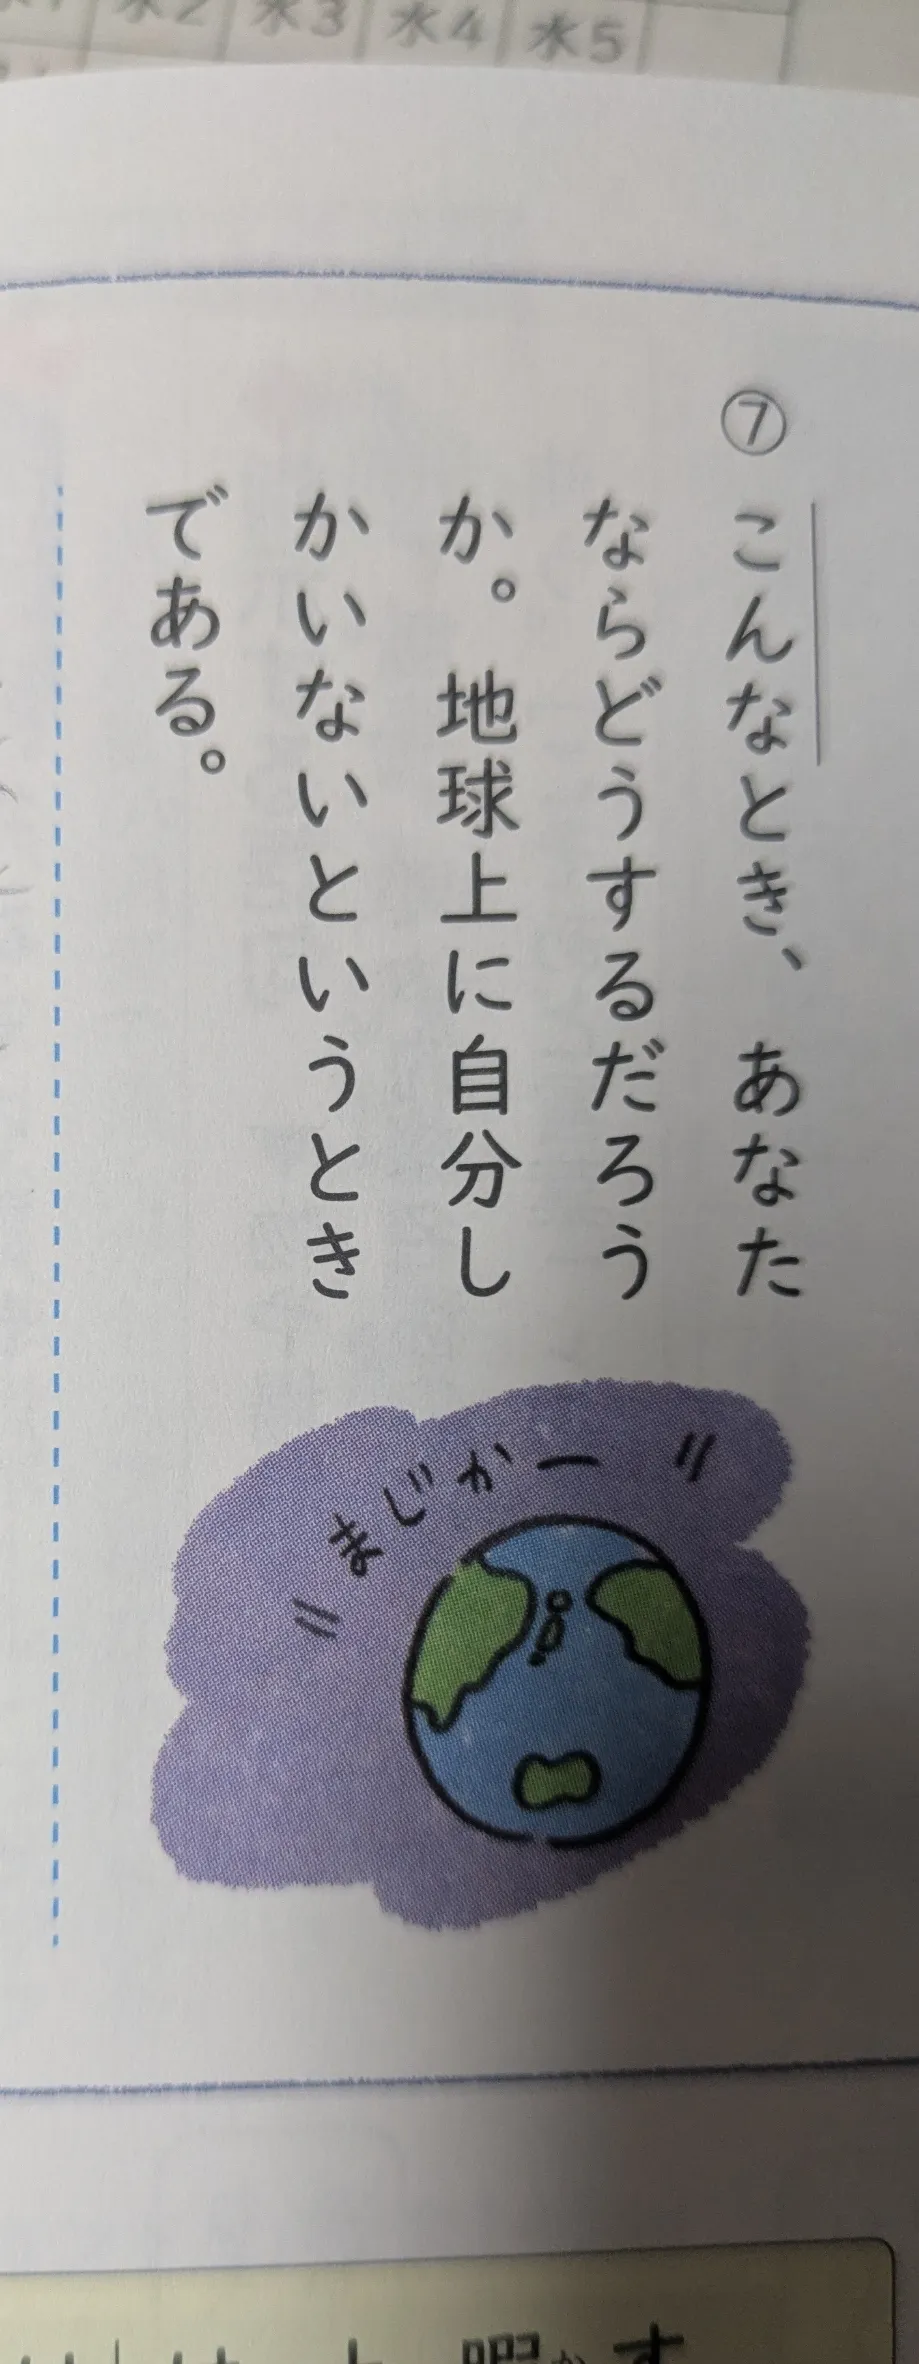 水2 水3 水4 水5
⑦ こんなとき、あなた
ならどうするだろう
か。地球上に自分し
かいないというとき
である。
まじかー